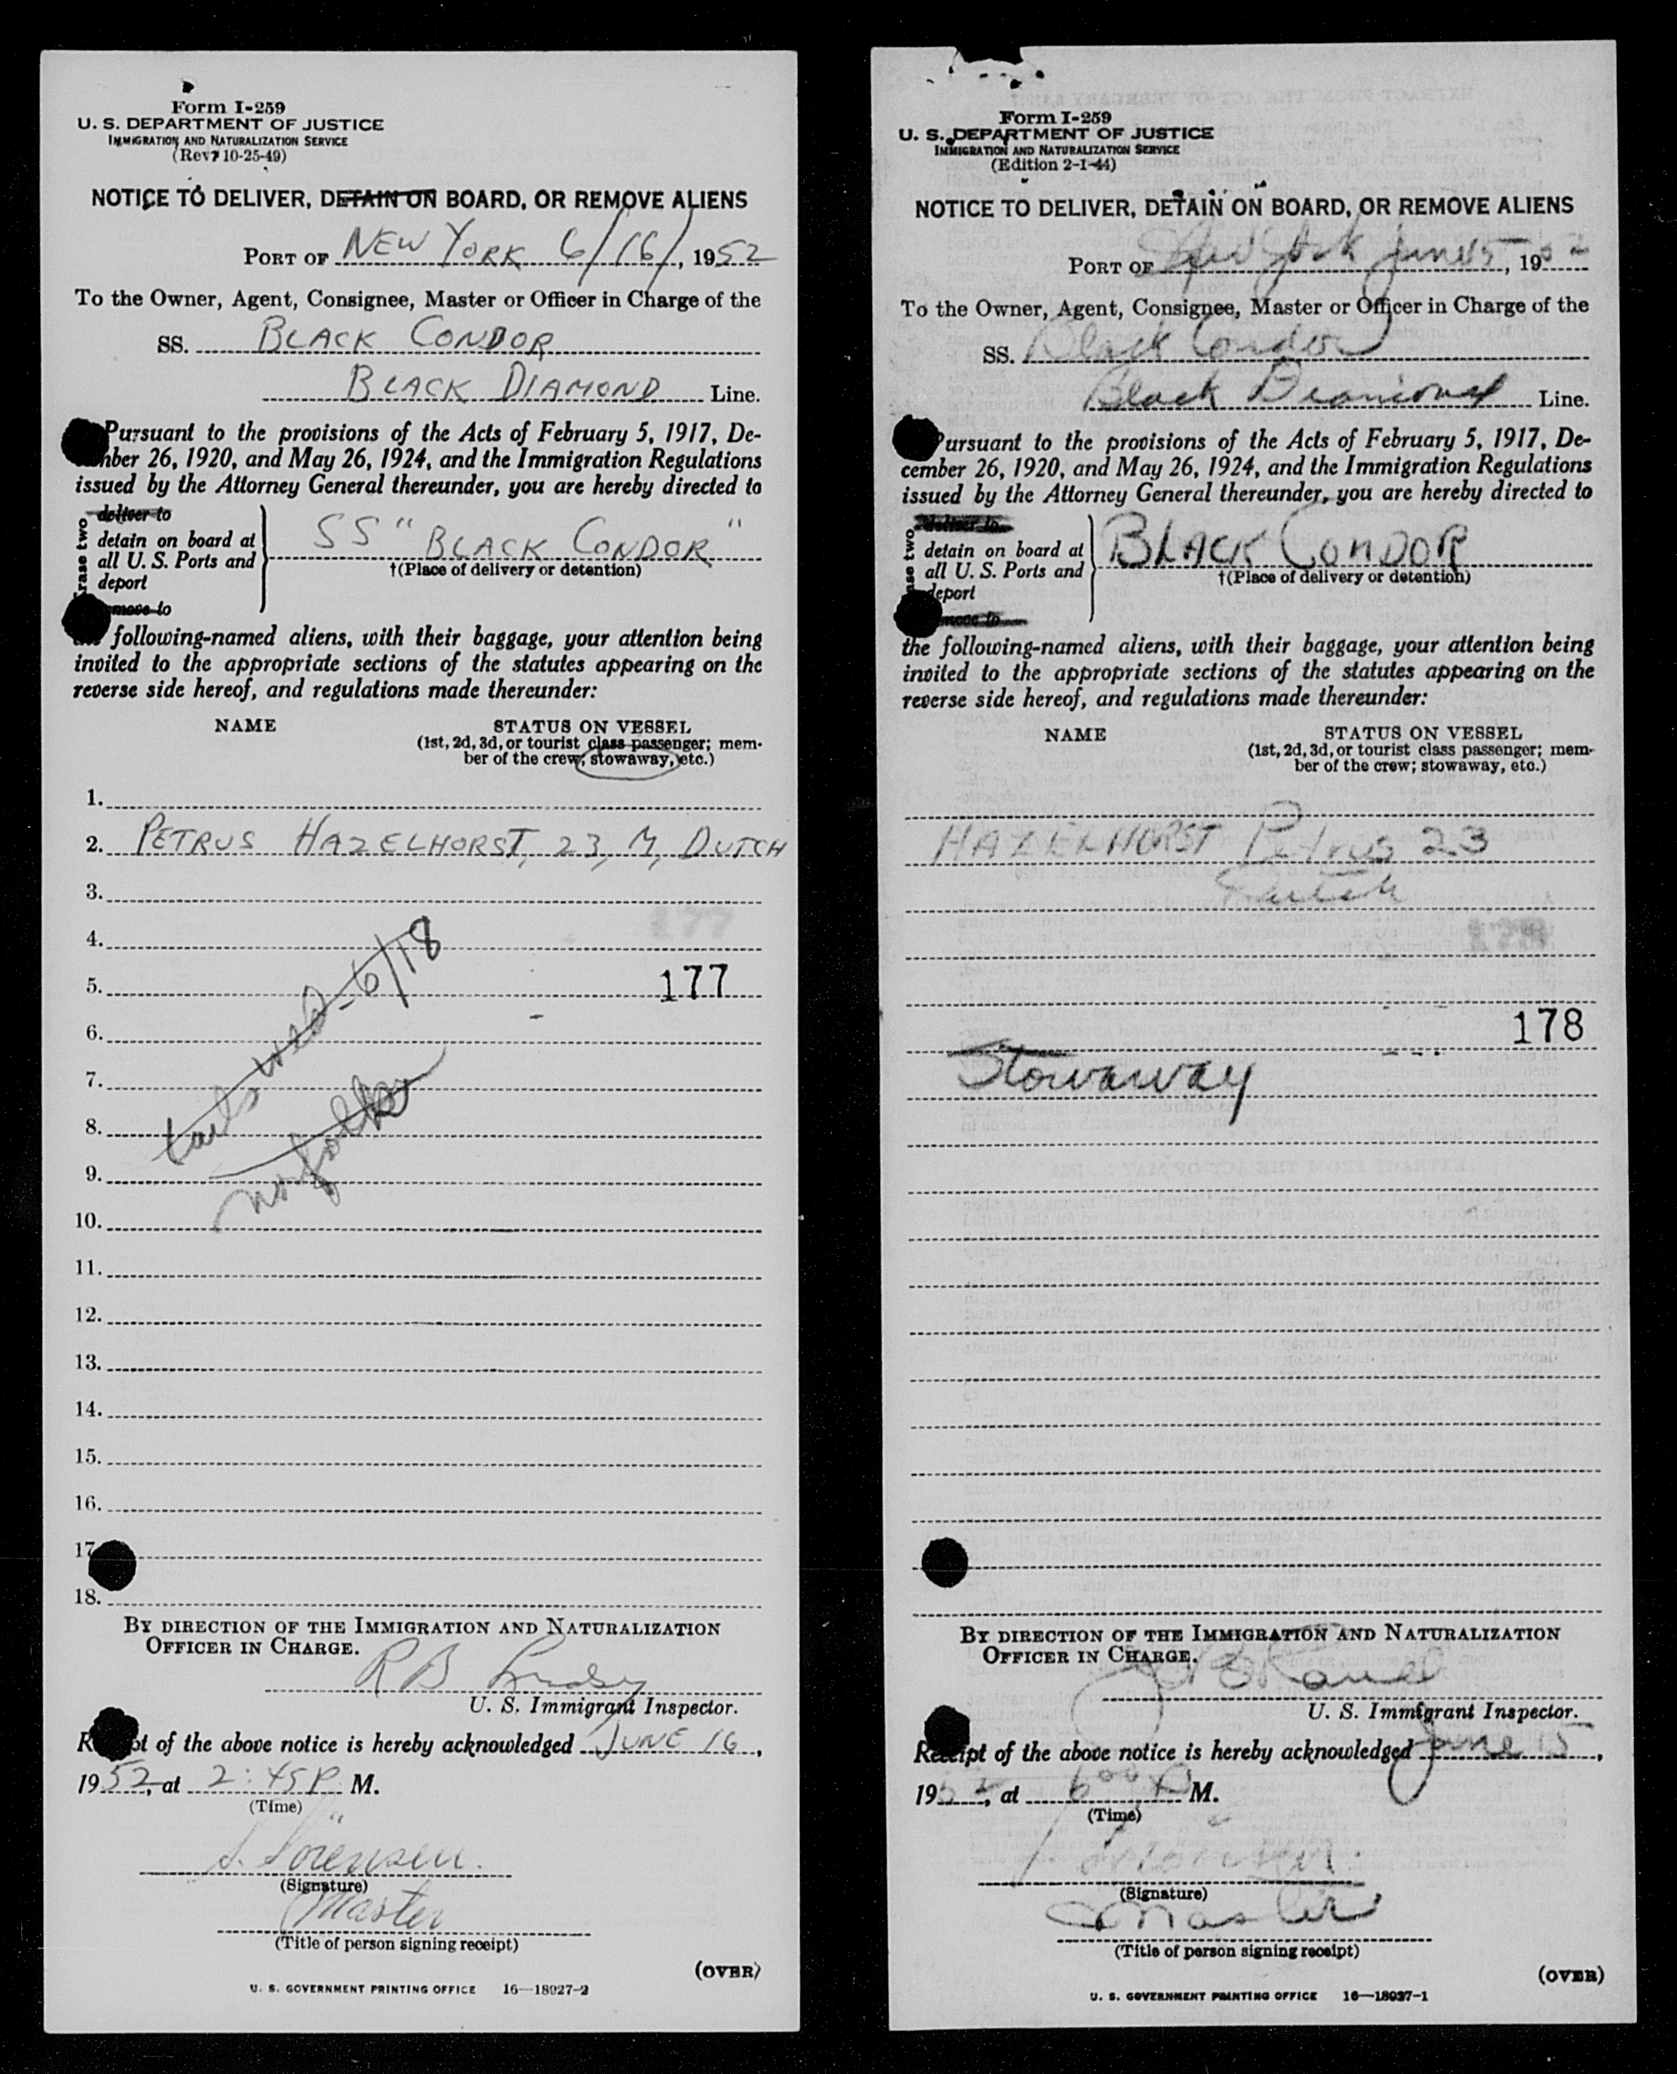 Form I-259
U. S. DEPARTMENT OF JUSTICE
IMMIGRATION AND NATURALIZATION SERVICE
(Rev. 10-25-49)
NOTICE TO DELIVER, DETAIN ON BOARD, OR REMOVE ALIENS
PORT OF NEW YORK 6/16/, 1952
To the Owner, Agent, Consignee, Master or Officer in Charge of the
SS. BLACK CONDOR
BLACK DIAMOND Line.
Pursuant to the provisions of the Acts of February 5, 1917, De-
mber 26, 1920, and May 26, 1924, and the Immigration Regulations
issued by the Attorney General thereunder, you are hereby directed to
Erase two
deliver to
detain on board at
all U. S. Ports and
deport
remove to
SS "BLACK CONDOR"
†(Place of delivery or detention)
the following-named aliens, with their baggage, your attention being
invited to the appropriate sections of the statutes appearing on the
reverse side hereof, and regulations made thereunder:
NAME STATUS ON VESSEL
(1st, 2d, 3d, or tourist class passenger; mem-
ber of the crew; stowaway, etc.)
1.
2. PETRUS HAZELHORST, 23, M, DUTCH
3.
4. 177
5. 177
6.
7.
8.
9.
10.
11.
12.
13.
14.
15.
16.
17
18.
sails wed-6/18
norfolk
BY DIRECTION OF THE IMMIGRATION AND NATURALIZATION
OFFICER IN CHARGE.
R B
U. S. Immigrant Inspector.
Receipt of the above notice is hereby acknowledged JUNE 16,
1952, at 2:45 P. M.
(Time)
S. Sörensen.
(Signature)
Master
(Title of person signing receipt)
(OVER)
U. S. GOVERNMENT PRINTING OFFICE 16—18027-2
Form I-259
U. S. DEPARTMENT OF JUSTICE
IMMIGRATION AND NATURALIZATION SERVICE
(Edition 2-1-44)
NOTICE TO DELIVER, DETAIN ON BOARD, OR REMOVE ALIENS
PORT OF New York June 15, 1952
To the Owner, Agent, Consignee, Master or Officer in Charge of the
SS. Black Condor
Black Diamond Line.
Pursuant to the provisions of the Acts of February 5, 1917, De-
cember 26, 1920, and May 26, 1924, and the Immigration Regulations
issued by the Attorney General thereunder, you are hereby directed to
ase two
deliver to
detain on board at
all U. S. Ports and
deport
remove to
BLACK CONDOR
†(Place of delivery or detention)
the following-named aliens, with their baggage, your attention being
invited to the appropriate sections of the statutes appearing on the
reverse side hereof, and regulations made thereunder:
NAME STATUS ON VESSEL
(1st, 2d, 3d, or tourist class passenger; mem-
ber of the crew; stowaway, etc.)
HAZELHORST Petrus 23
Dutch
178
Stowaway
BY DIRECTION OF THE IMMIGRATION AND NATURALIZATION
OFFICER IN CHARGE.
U. S. Immigrant Inspector.
Receipt of the above notice is hereby acknowledged June 15,
1952, at 6 00 P M.
(Time)
Sörensen.
(Signature)
Master
(Title of person signing receipt)
(OVER)
U. S. GOVERNMENT PRINTING OFFICE 16—18027-1